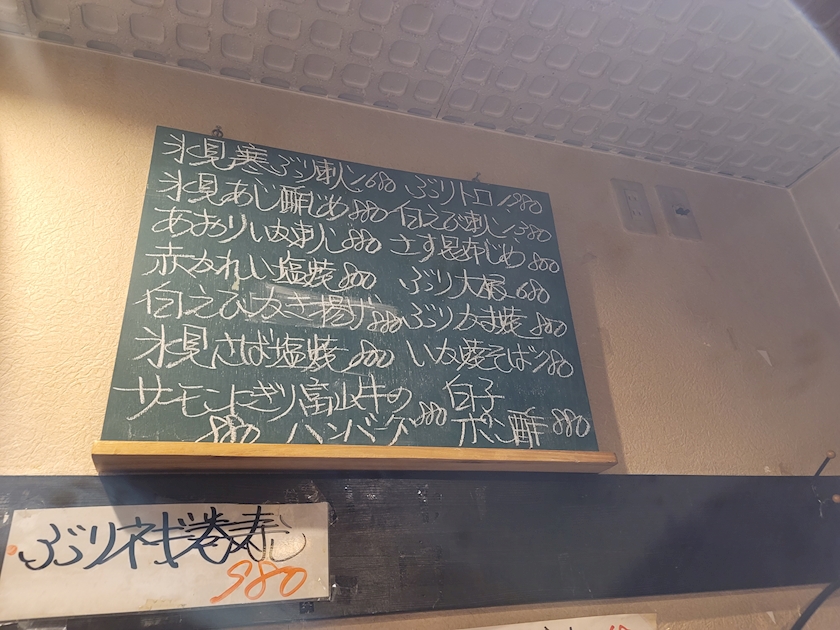 氷見寒ぶり刺し 680 ぶりトロ 1,980
氷見あじ酢じめ 880 白えび刺し 1,380
あおりいか刺し 880 さす昆布じめ 800
赤がれい塩焼 800 ぶり大根 680
白えびかき揚げ 880 ぶりかま焼 800
氷見さば塩焼 800 いか焼そば
サーモンにぎり 富山牛の 白子
880 ハンバーグ 880 ポン酢 880
ぶりネギ巻寿し
980